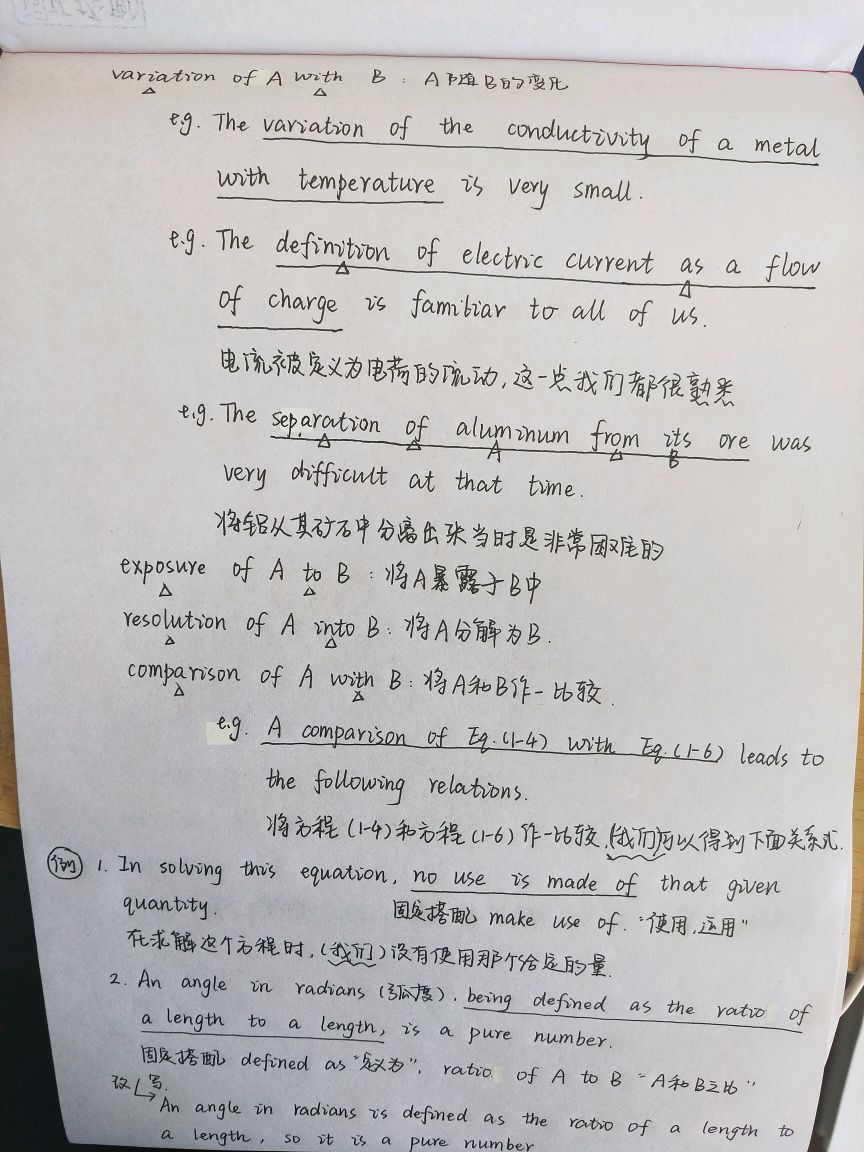 variation of A with B : A随B的变化
e.g. The variation of the conductivity of a metal
with temperature is very small.
e.g. The definition of electric current as a flow
of charge is familiar to all of us.
电流被定义为电荷的流动,这一点我们都很熟悉
e.g. The separation of aluminum from its ore was
A B
very difficult at that time.
将铝从其矿石中分离出来当时是非常困难的
exposure of A to B : 将A暴露于B中
resolution of A into B : 将A分解为B.
comparison of A with B : 将A和B作一比较.
e.g. A comparison of Eq.(1-4) with Eq.(1-6) leads to
the following relations.
将方程(1-4)和方程(1-6)作一比较,(我们)可以得到下面关系式.
例 1. In solving this equation, no use is made of that given
quantity. 固定搭配 make use of. "使用,运用"
在求解这个方程时,(我们)没有使用那个给定的量.
2. An angle in radians (弧度), being defined as the ratio of
a length to a length, is a pure number.
固定搭配 defined as "定义为", ratio of A to B "A和B之比"
改写
An angle in radians is defined as the ratio of a length to
a length, so it is a pure number